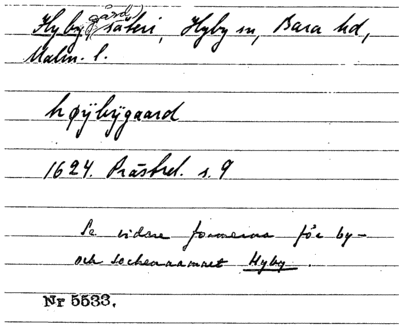 Hyby gård, säteri, Hyby sn, Bara hd,
Malm. l.
høÿbÿgaard
1624. Prästrel. s. 9
Se vidare formerna för by-
och sockennamnet Hyby.
Nr 5533.